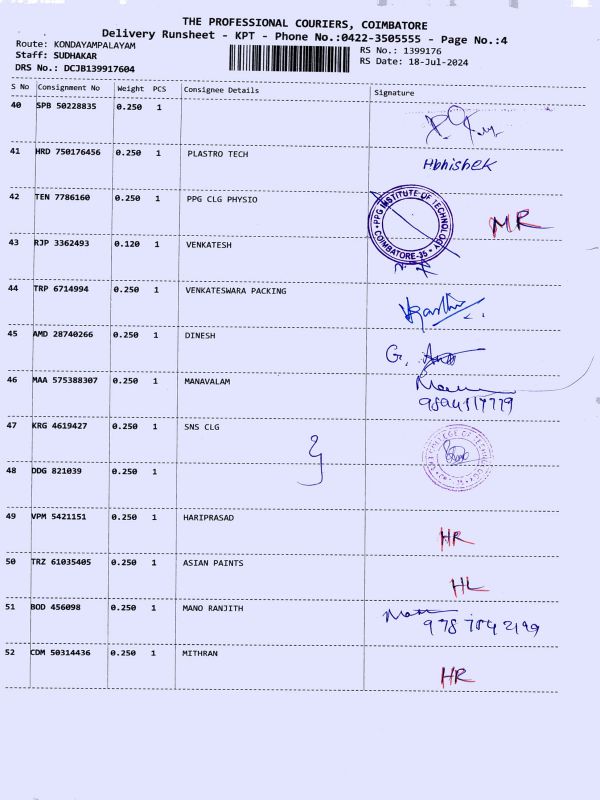 THE PROFESSIONAL COURIERS, COIMBATORE
Delivery Runsheet - KPT - Phone No.:0422-3505555 - Page No.:4
Route: KONDAYAMPALAYAM
RS No.: 1399176
Staff: SUDHAKAR
RS Date: 18-Jul-2024
DRS No.: DCJB139917604
S No Consignment No Weight PCS Consignee Details Signature
40 SPB 50228835 0.250 1
41 HRD 750176456 0.250 1 PLASTRO TECH Abhishek
42 TEN 7786160 0.250 1 PPG CLG PHYSIO MR
PPG INSTITUTE OF TECHNOLOGY
COIMBATORE-35
43 RJP 3362493 0.120 1 VENKATESH
44 TRP 6714994 0.250 1 VENKATESWARA PACKING
45 AMD 28740266 0.250 1 DINESH G.
46 MAA 575388307 0.250 1 MANAVALAM
47 KRG 4619427 0.250 1 SNS CLG
COLLEGE OF TECHNOLOGY
48 DDG 821039 0.250 1
49 VPM 5421151 0.250 1 HARIPRASAD HR
50 TRZ 61035405 0.250 1 ASIAN PAINTS HL
51 BOD 456098 0.250 1 MANO RANJITH
52 CDM 50314436 0.250 1 MITHRAN HR